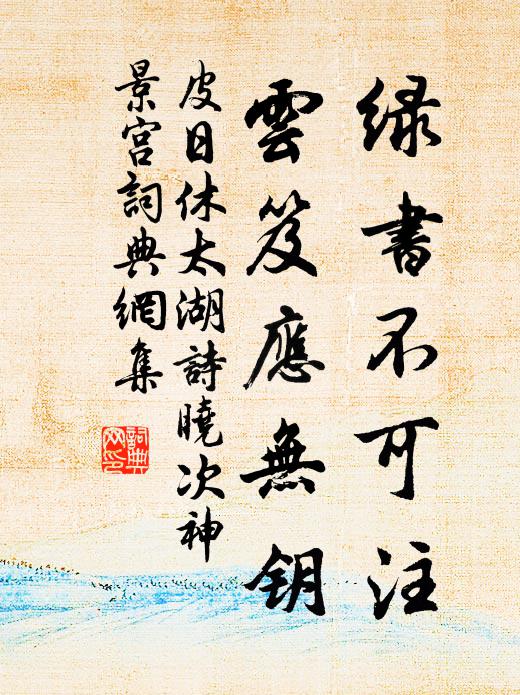 绿書不可注
雲笈應無钥
皮日休太湖詩曉次神
景宫詞典網集
詞典
网印